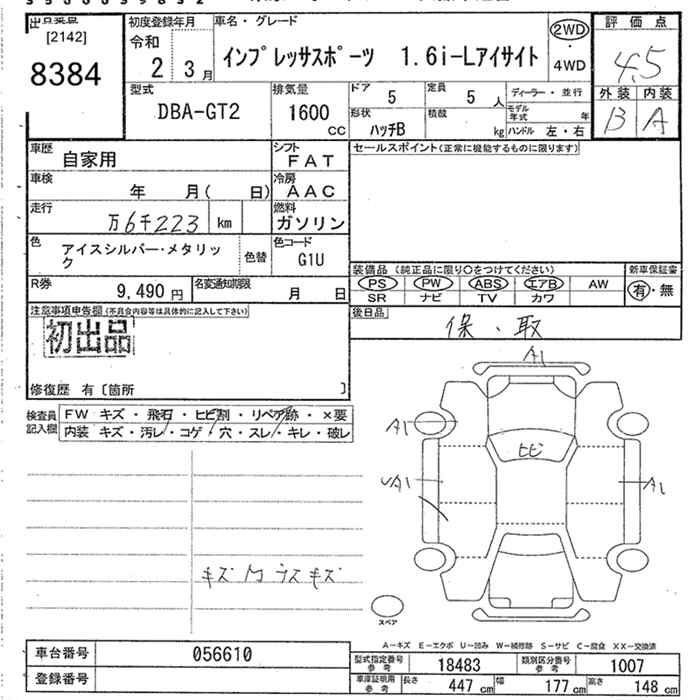 出品番号
[2142]
8384
初度登録年月
令和
2 3月
車名・グレード
インプレッサスポーツ 1.6i-Lアイサイト
2WD
4WD
評価点
4.5
外装 内装
B A
型式
DBA-GT2
排気量
1600
CC
ドア
5
定員
5 人
ディーラー・並行
形状
ハッチB
積載
kg
モデル年式 年
ハンドル 左・右
車歴
自家用
シフト
FAT
セールスポイント(正常に機能するものに限ります)
車検
年 月( 日)
冷房
AAC
走行
万6千223 km
燃料
ガソリン
色
アイスシルバー・メタリック
色替
色コード
G1U
装備品(純正品に限り○をつけてください)
新車保証書
PS PW ABS エアB AW
SR ナビ TV カワ
有・無
R券
9,490 円
名変通知期限
月 日
後日品
保・取
注意事項申告欄(不具合内容等は具体的に記入して下さい)
初出品
修復歴 有〔箇所 〕
検査員記入欄
FW キズ・飛石・ヒビ割・リペア跡・×要
内装 キズ・汚レ・コゲ・穴・スレ・キレ・破レ
A1
A1
ヒビ
A1
A1
スペア
A-キズ E-エクボ U-凹み W-補修跡 S-サビ C-腐食 XX-交換済
車台番号
056610
登録番号
型式指定番号
参考
18483
類別区分番号
参考
1007
車庫証明用
参考
長さ
447 cm
幅
177 cm
高さ
148 cm